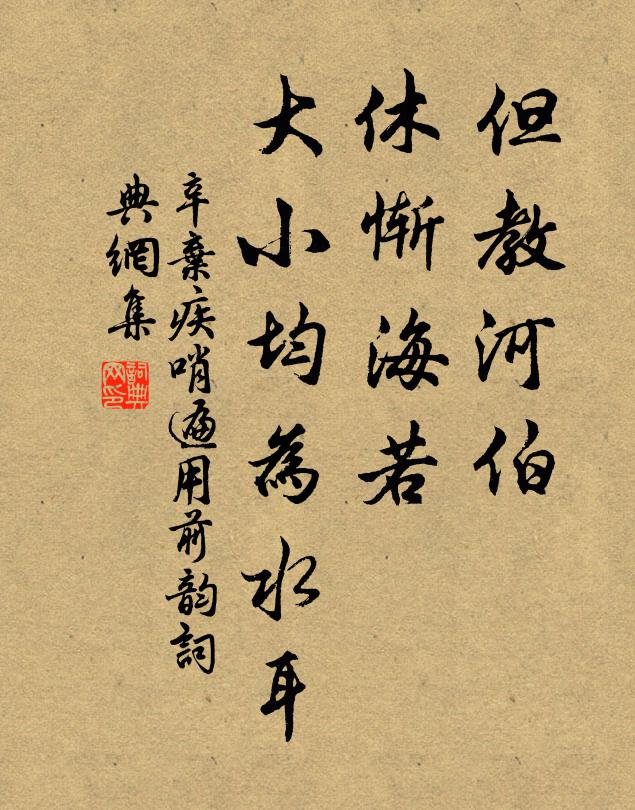 但教河伯
休慚海若
大小均為水耳
辛棄疾哨遍用前韵詞
典網集
詞典
网印